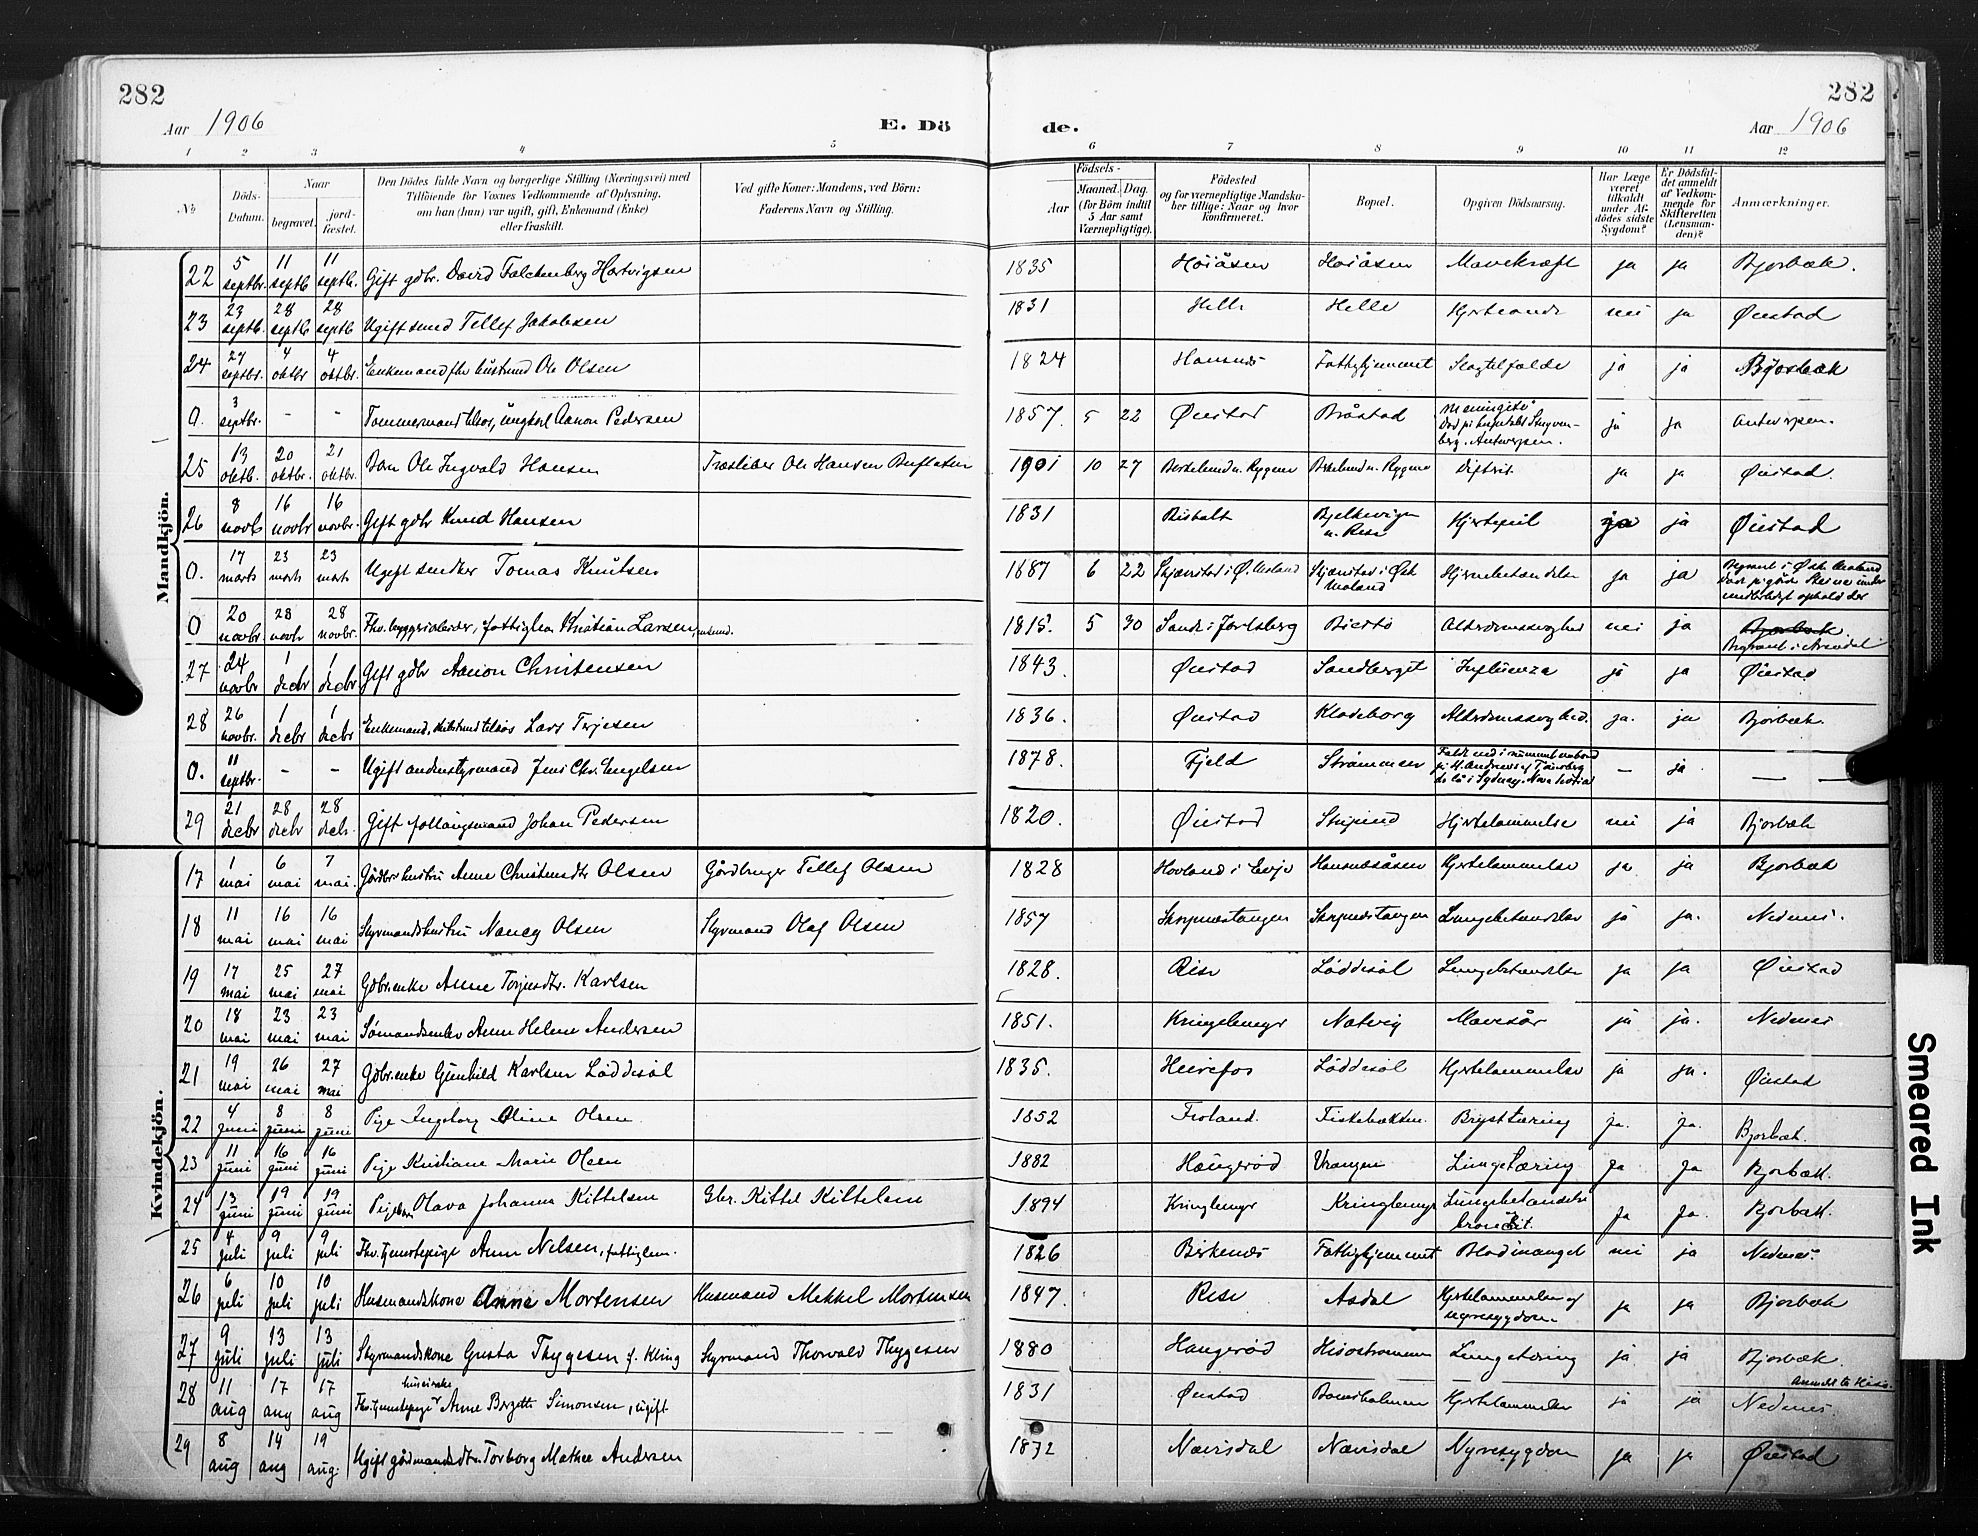 282
282
Aar 1906
E. Dö
de.
Aar 1906
1 2 3 4 5 6 7 8 9 10 11 12
№
Döds-Datum.
Naar
begravet.
jord-fæstet.
Den Dödes fulde Navn og borgerlige Stilling (Næringsvei) med
Tilföiende for Voxnes Vedkommende af Oplysning,
om han (hun) var ugift, gift, Enkemand (Enke)
eller fraskilt.
Ved gifte Koner: Mandens, ved Börn:
Faderens Navn og Stilling.
Födsels-
Aar
Maaned. Dag.
(for Börn indtil
5 Aar samt
Værnepligtige).
Födested
og for værnepligtige Mandska-
ber tillige: Naar og hvor
konfirmeret.
Bopæl.
Opgiven Dödsaarsag.
Har Læge
været
tilkaldt
under Af-
dödes sidste
Sygdom?
Er Dödsfal-
det anmeldt
af Vedkom-
mende for
Skifteretten
(Lensman-
den)?
Anmærkninger.
Mandkjön.
22 5 septbr. 11 septb. 11 septb. Gift gdbr. David Falckenberg Hartvigsen 1835 Høiåsen Høiåsen Mavekræft ja ja Bjorbæk.
23 23 septb. 28 septb 28 septb. Ugift Tellef Jakobsen 1831 Helle Helle nei ja Øiestad
24 27 septbr. 4 oktbr 4 oktbr. Enkemand Ole Olsen 1824 Fattighjemmet ja ja Bjorbæk
0. 3 septbr. - - Tømmermand Aanon Pedersen 1857. 5 22 Øiestad Bråstad Meningite ja ja Antwerpen.
25 13 oktb. 20 oktbr. 21 oktbr. Barn Ole Ingvald Hansen Ole Hansen 1901 10 27 Difterit ja ja Øiestad.
26 8 novb 16 novbr 16 novbr. Gift gdbr Knud Hansen 1831 Hjertefeil ja ja Øiestad
0. 17 marts 23 marts 23 marts Ugift Tomas Knutsen 1887 6 22 ja ja
0 20 novbr. 28 novb 28 novbr. Kristian Larsen 1815. 5 30 Sande i Jarlsberg Alderdomssvaghed nei ja Bjorbæk. Begravet i Arendal
27 24 novbr 1 decbr 1 decbr Gift gdbr Aanon Christensen 1843. Øiestad Sandberget Influenza ja ja Øiestad
28 26 novbr. 1 decbr 1 decbr Enkemand, Lars Terjesen 1836. Øiestad Klodeborg Alderdomssvaghed. ja. ja Bjorbæk.
0. 11 septbr. - - Ugift andenstyrmand Jens Chr. Engelsen 1878. Fjeld Strømmen - ja - -
29 21 decbr 28 decbr 28 decb. Gift Johan Pedersen 1820. Øiestad Hjertelammelse nei ja Bjorbæk
Kvindekjön.
17 1 mai 6 mai 7 mai. Gårdbr. hustru Anne Christensdtr Olsen Gårdbruger Tellef Olsen 1828 Hovland i Evje Hjertelammelse ja ja Bjorbæk
18 11 mai 16 mai 16 mai Styrmandshustru Nancy Olsen Styrmand Olaf Olsen 1857 Lungebetændelse ja ja. Nedenes.
19 17 mai 25 mai 27 mai Gdbr.enke Anne Terjesdtr. Karlsen 1828. Rise Løddesøl Lungebetændelse ja ja Øiestad
20 18 mai 23 mai 23 mai Sømandsenke Anne Helene Andersen 1851. Natvig Mavesår ja ja. Nedenes
21 19 mai 26 mai 27 mai Gdbr.enke Gunhild Karlsen Løddesøl 1835. Heirefos Løddesøl Hjertelammelse ja ja. Øiestad
22 4 juni 8 juni 8 juni Pige Ingeborg Oline Olsen 1852 Froland. Fiskebækken. Brysttæring ja. ja. Bjorbæk.
23 11 juni 16 juni 16 juni Pige Kristiane Marie Olsen 1882 Haugerød Vrangen Lungetæring ja ja Bjorbæk.
24 13 juni 19 juni 19 juni Pigebarn Olava Johanne Kittelsen Gbr. Kittel Kittelsen 1894 Lungebetændelse ja ja. Bjorbæk.
25 4 juli 9 juli 9 juli Fhv. tjenestepige Anne Nelsen, fattiglem. 1826 Birkenæs Fattighjemmet Blodmangel nei ja Nedenes.
26 6 juli 10 juli 10 juli Husmandskone Anne Mortensen Husmand Mekkel Mortensen 1847. Rise Asdal Hjertelammelse og nyresygdom. ja ja Bjorbæk
27 9 juli 13 juli 13 juli Styrmandskone Gusta Thygesen f. Kling Styrmand Thorvald Thygesen 1880 Haugerød Lungetæring ja ja Bjorbæk.
28 11 aug 17 aug 17 aug Fhv. tjenestepige Anne Bergette Simonsen, ugift 1831 Øiestad Hjertelammelse ja ja Nedenes.
29 8 aug 14 aug 19 aug. Ugift Torborg Mathea Andersen 1872 Nævisdal Nævisdal Nyresygdom ja ja Øiestad
Smeared Ink